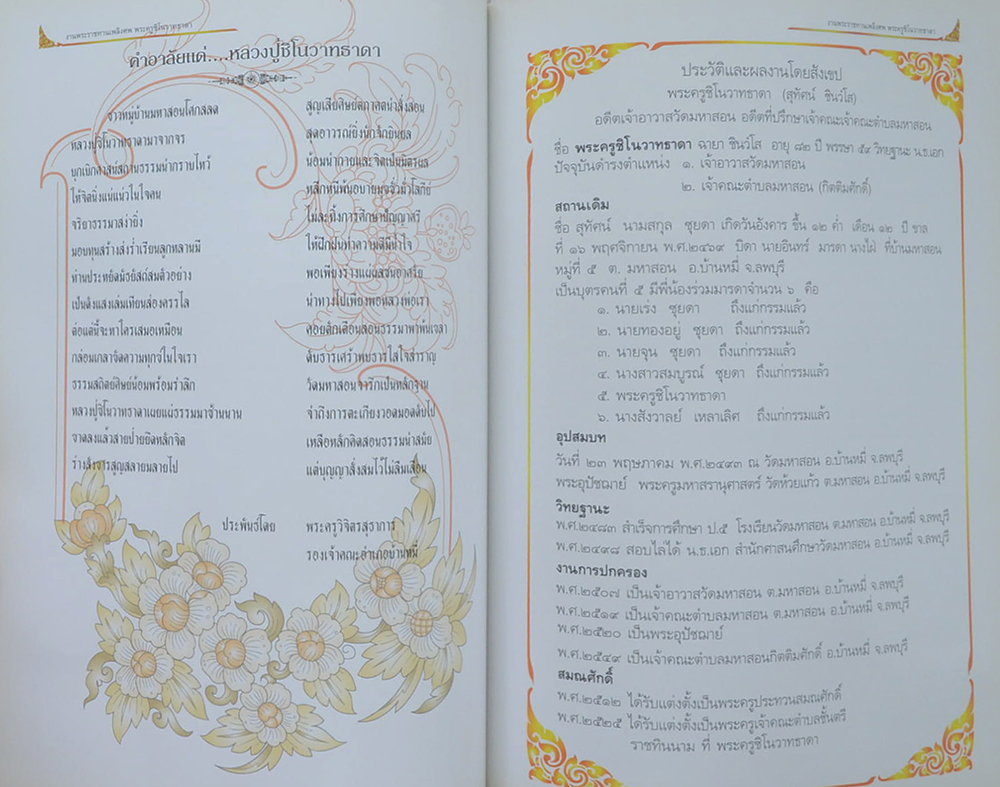 งานพระราชทานเพลิงศพ พระครูชิโนวาทธาดา
คำอาลัยแด่....หลวงปู่ชิโนวาทธาดา
ชาวหมู่บ้านมหาสอนโศกสลด
สูญเสียศิษย์สถาคตนำสั่งสอน
หลวงปู่ชิโนวาทธาดามาจากจร
สุดอาวรณ์ยิ่งนัก
บุกเบิกศาสน์สถานธรรมนำกราบไหว้
น้อมนำกายและจิตเป็นมิตรผล
ให้จิตนิ่งแน่แน่วในใจคน
หลีกหนีพ้นอบายมุขชั่วมั่วโลกีย์
จริยาธรรมาสง่ายิ่ง
ไม่ละทิ้งการศึกษาปัญญาศรี
มอบทุนสร้างส่งร่ำเรียนลูกหลานมี
ให้ฝึกฝนทำความดีมีน้ำใจ
ท่านประหยัดมัธยัสถ์สมตัวอย่าง
พอเพียงร่าง
เป็นดั่งแสงเล่มเทียนส่องครรไล
นำทางไปเพียงพอหลวงพ่อเรา
ต่อแต่นี้จะหาใครเสมอเหมือน
คอยตักเตือนสอนธรรมาพาพ้นเขลา
กล่อมเกลาขจัดความทุกข์ในใจเรา
ดับธารเศร้าพบธารใสใจสำราญ
ธรรมสถิตย์ศิษย์น้อมพร้อมรำลึก
วัดมหาสอนจารึกเป็นหลักฐาน
หลวงปู่ชิโนวาทธาดาเผยแผ่ธรรมมาช้านาน
จำถึงการตะเกียงวอดมอดดับไป
ขาดลงแล้วสายป่ายยึดหลักจิต
เหลือหลักคิดสอนธรรมนำสมัย
ร่างสังขารสูญสลายมลายไป
แต่บุญญาสั่งสมไว้ไม่ลืมเลือน
ประพันธ์โดย พระครูวิจิตรสุธาการ
รองเจ้าคณะอำเภอบ้านหมี่
งานพระราชทานเพลิงศพ พระครูชิโนวาทธาดา
ประวัติและผลงานโดยสังเขป
พระครูชิโนวาทธาดา (สุทัศน์ ชินวํโส)
อดีตเจ้าอาวาสวัดมหาสอน อดีตที่ปรึกษาเจ้าคณะเจ้าคณะตำบลมหาสอน
ชื่อ พระครูชิโนวาทธาดา ฉายา ชินวํโส อายุ ๘๒ ปี พรรษา ๕๙ วิทยฐานะ น.ธ.เอก
ปัจจุบันดำรงตำแหน่ง ๑. เจ้าอาวาสวัดมหาสอน
๒. เจ้าคณะตำบลมหาสอน (กิตติมศักดิ์)
สถานเดิม
ชื่อ สุทัศน์ นามสกุล ชุยดา เกิดวันอังคาร ขึ้น ๑๒ ค่ำ เดือน ๑๒ ปี ขาล
ที่ ๑๖ พฤศจิกายน พ.ศ.๒๔๖๙ บิดา นายอินทร์ มารดา นางไผ่ ที่บ้านมหาสอน
หมู่ที่ ๕ ต. มหาสอน อ.บ้านหมี่ จ.ลพบุรี
เป็นบุตรคนที่ ๕ มีพี่น้องร่วมมารดาจำนวน ๖ คือ
๑. นายเร่ง ชุยดา ถึงแก่กรรมแล้ว
๒. นายทองอยู่ ชุยดา ถึงแก่กรรมแล้ว
๓. นายจุน ชุยดา ถึงแก่กรรมแล้ว
๔. นางสาวสมบูรณ์ ชุยดา ถึงแก่กรรมแล้ว
๕. พระครูชิโนวาทธาดา
๖. นางสังวาลย์ เหลาเลิศ ถึงแก่กรรมแล้ว
อุปสมบท
วันที่ ๒๓ พฤษภาคม พ.ศ.๒๔๙๓ ณ วัดมหาสอน อ.บ้านหมี่ จ.ลพบุรี
พระอุปัชฌาย์ พระครูมหาสรานุศาสตร์ วัดห้วยแก้ว ต.มหาสอน อ.บ้านหมี่ จ.ลพบุรี
วิทยฐานะ
พ.ศ.๒๔๘๓ สำเร็จการศึกษา ป.๕ โรงเรียนวัดมหาสอน ต.มหาสอน อ.บ้านหมี่ จ.ลพบุรี
พ.ศ.๒๔๙๘ สอบไล่ได้ น.ธ.เอก สำนักศาสนศึกษาวัดมหาสอน อ.บ้านหมี่ จ.ลพบุรี
งานการปกครอง
พ.ศ.๒๕๐๗ เป็นเจ้าอาวาสวัดมหาสอน ต.มหาสอน อ.บ้านหมี่ จ.ลพบุรี
พ.ศ.๒๕๑๙ เป็นเจ้าคณะตำบลมหาสอน ต.มหาสอน อ.บ้านหมี่ จ.ลพบุรี
พ.ศ.๒๕๒๐ เป็นพระอุปัชฌาย์
พ.ศ.๒๕๔๙ เป็นเจ้าคณะตำบลมหาสอนกิตติมศักดิ์ อ.บ้านหมี่ จ.ลพบุรี
สมณศักดิ์
พ.ศ.๒๕๑๒ ได้รับแต่งตั้งเป็นพระครูประทวนสมณศักดิ์
พ.ศ.๒๕๒๕ ได้รับแต่งตั้งเป็นพระครูเจ้าคณะตำบลชั้นตรี
ราชทินนาม ที่ พระครูชิโนวาทธาดา